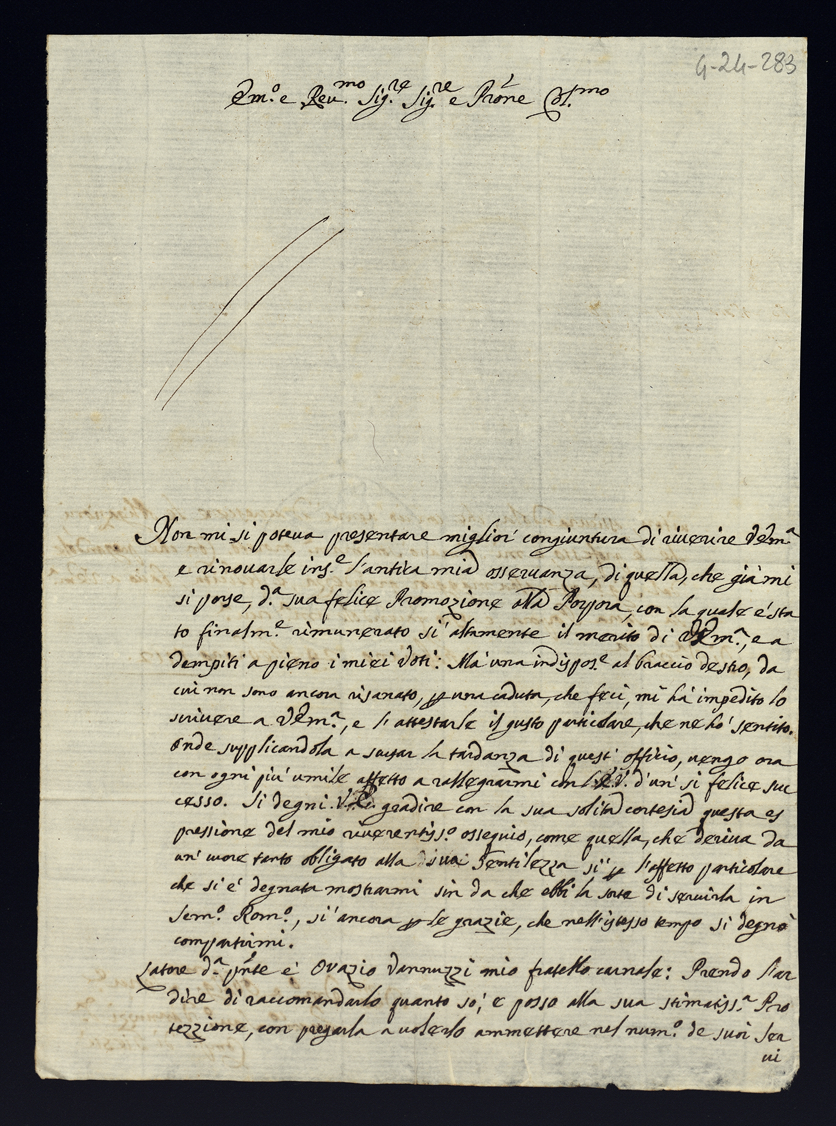 4-24-283
Em.º e Reu.mo Sig.re Sig.re e Prõne
Non mi si poteua presentare miglior congiuntura di riuerire VEm.ª
e rinouarle ins.e l'antica mia osseruanza, di quella, che già mi
si porse, d.ª sua felice Promozione alla Porpora, con la quale è sta
to finalm.e rimunerato si altamente il merito di VEm.ª, e a
dempiti a pieno i miei Voti: Mà una indispos.e al braccio destro, da
cui non sono ancora risanato, per una caduta, che feci, mi hà impedito lo
scriuere a VEm.ª, e l'attestarle il gusto particolare, che ne hò sentito.
Onde supplicandola a scusar la tardanza di quest' officio, uengo ora
con ogni più umile affetto a rallegrarmi con l'E.V. d'un si felice suc
cesso. Si degni V.E. gradire con la sua solita cortesia questa es
pressione del mio riuerentiss.º ossequio, come quella, che deriua da
un' cuore tanto obligato alla sua Gentilezza sì per l'affetto particolare
che si è degnata mostrarmi sin da che ebbi la sorte di seruirla in
Sem.º Rom.º, sì ancora per le grazie, che nell'istesso tempo si degnò
compartirmi.
Latore d.ª pñte è Orazio Vannuzzi mio fratello carnale: Prendo l'ar
dire di raccomandarlo quanto sò, e posso alla sua stimatiss.ª Pro
tezzione, con pregarla a uolerlo ammettere nel num.º de suoi Ser
ui